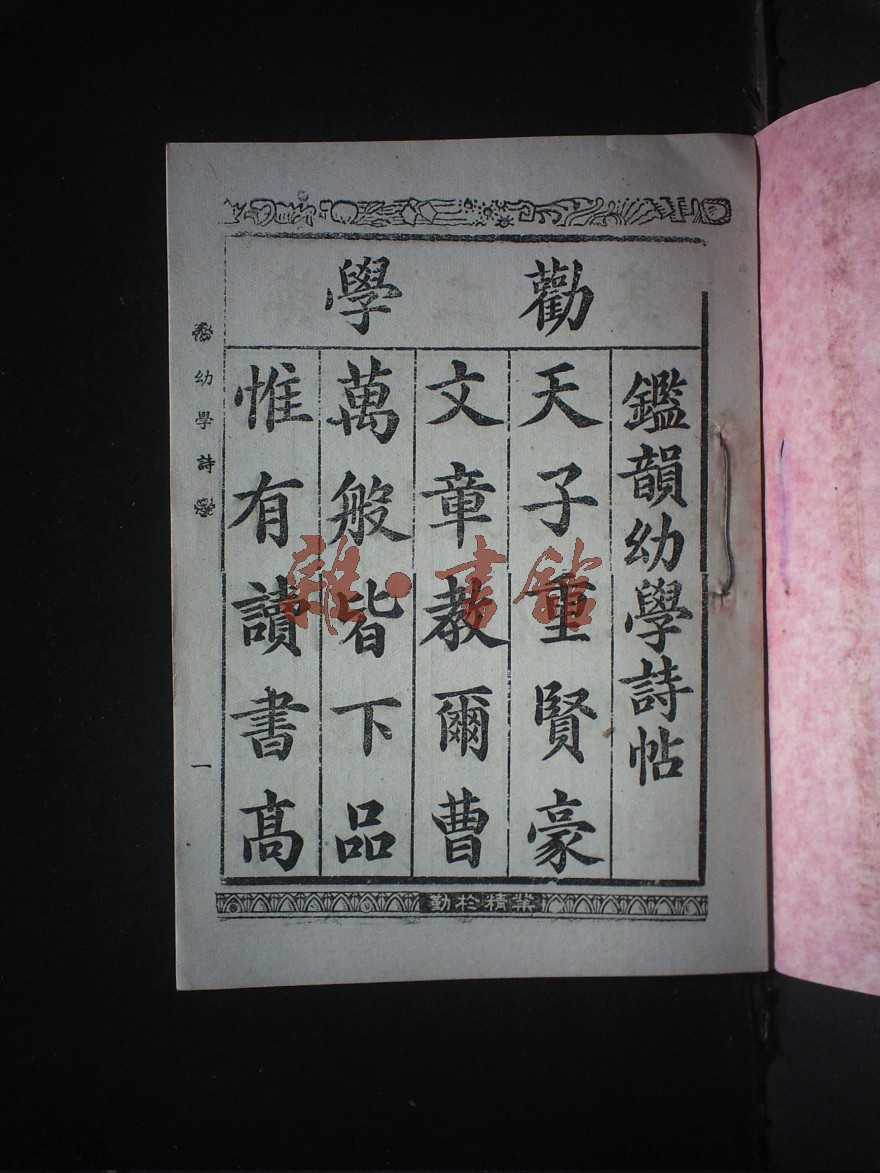 鑑韻幼學詩帖
勸學
天子重賢豪
文章教爾曹
萬般皆下品
惟有讀書高
幼學詩
一
業精於勤
雜·書館